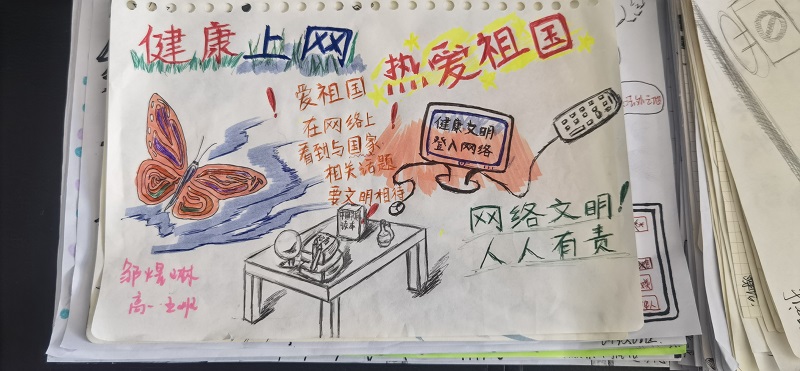 健康上网
热爱祖国
爱祖国
在网络上
看到与国家
相关话题
要文明相待
健康文明
登入网络
网络文明!
人人有责
邹煜琳
高一五班